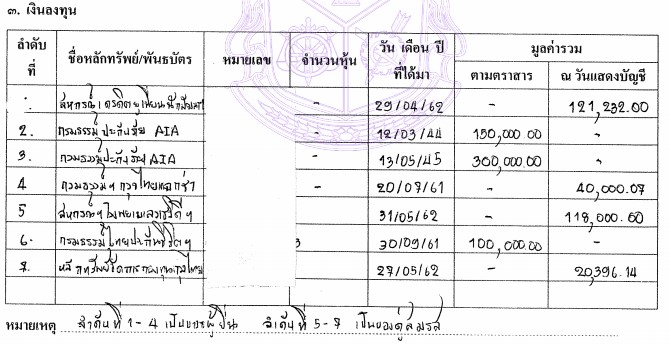 ๓. เงินลงทุน
ลำดับที่ ชื่อหลักทรัพย์/พันธบัตร หมายเลข จำนวนหุ้น วัน เดือน ปี ที่ได้มา มูลค่ารวม
ตามตราสาร ณ วันแสดงบัญชี
1. สหกรณ์เครดิตยูเนี่ยน - 29/04/62 - 121,232.00
2. กรมธรรม์ประกันชีวิต AIA - 12/03/44 150,000.00 -
3. กรมธรรม์ประกันชีวิต AIA - 13/05/45 300,000.00 -
4 กรมธรรม์ฯ กรุงไทยแอกซ่า - 20/07/61 - 40,000.07
5 สหกรณ์ฯ 31/05/62 - 118,000.00
6. กรมธรรม์ไทยประกันชีวิตฯ 30/09/61 100,000.00 -
7. 27/05/62 - 20,396.14
หมายเหตุ ลำดับที่ 1-4 เป็นของผู้ยื่น ลำดับที่ 5-7 เป็นของคู่สมรส